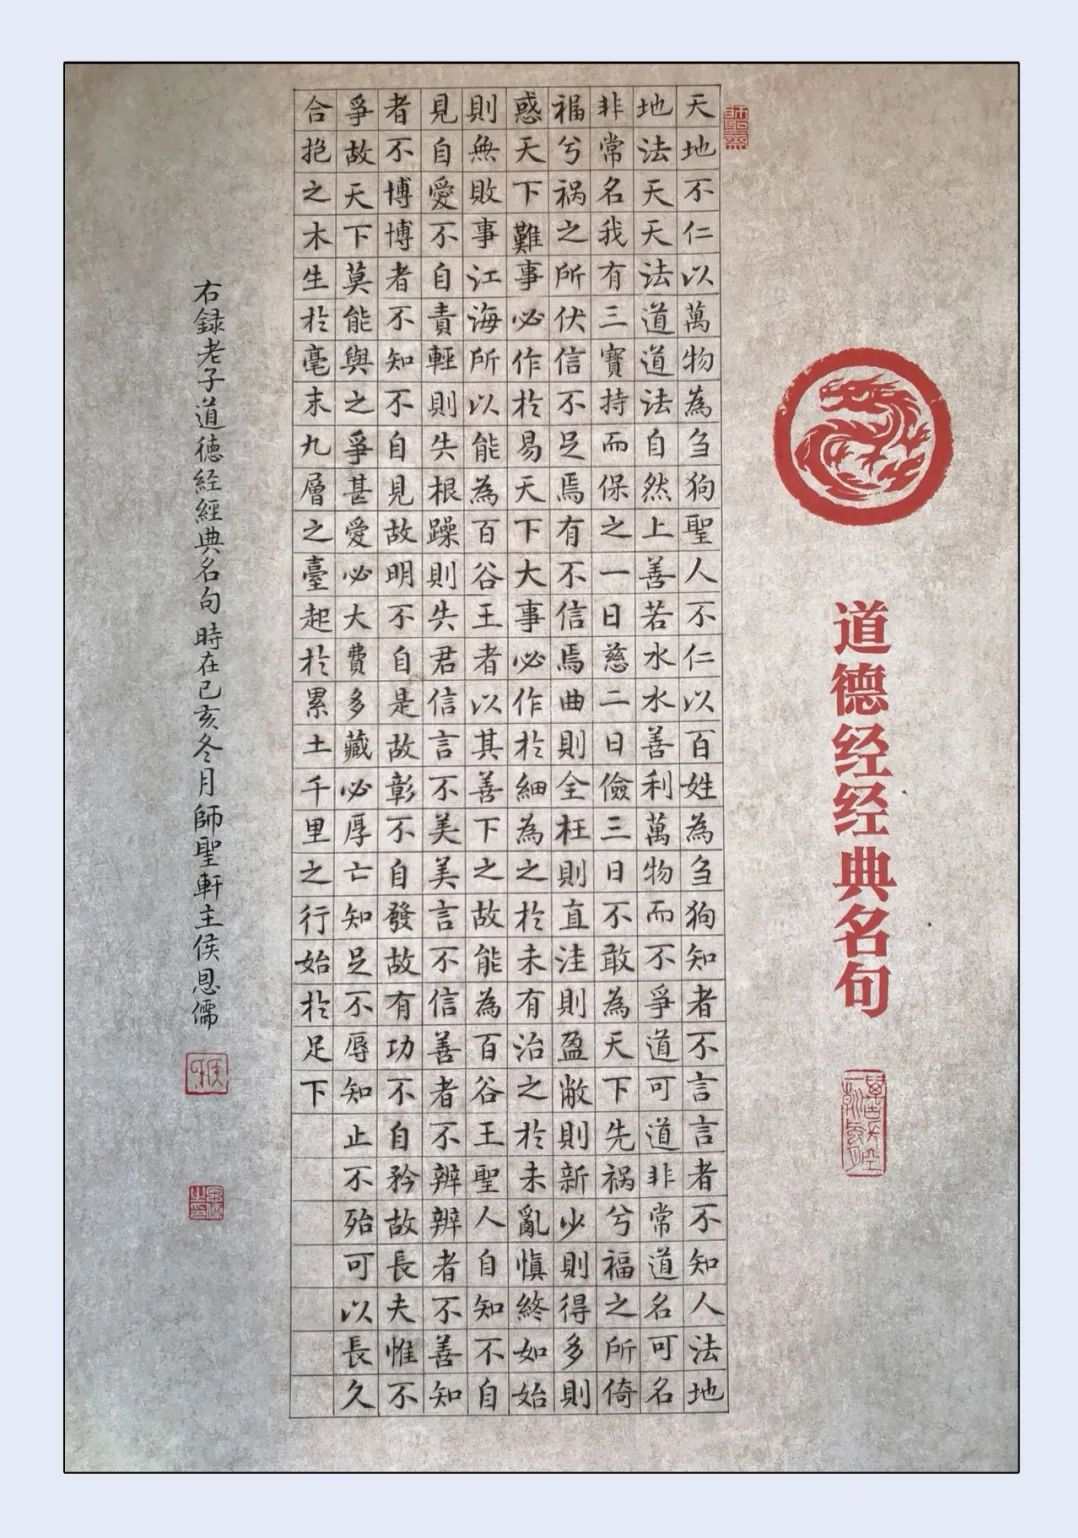 道德经经典名句
天地不仁以萬物為刍狗聖人不仁以百姓為刍狗知者不言言者不知人法地
地法天天法道道法自然上善若水水善利萬物而不爭道可道非常道名可名
非常名我有三寶持而保之一日慈二日儉三日不敢為天下先祸兮福之所倚
福兮祸之所伏信不足焉有不信焉曲則全枉則直洼則盈敝則新少則得多則
惑天下難事必作於易天下大事必作於細為之於未有治之於未亂慎終如始
則無敗事江海所以能為百谷王者以其善下之故能為百谷王聖人自知不自
見自愛不自責輕則失根躁則失君信言不美美言不信善者不辨辨者不善知
者不博博者不知不自見故明不自是故彰不自發故有功不自矜故長夫惟不
爭故天下莫能與之爭甚愛必大費多藏必厚亡知足不辱知止不殆可以長久
合抱之木生於毫末九層之臺起於累土千里之行始於足下
右録老子道德经經典名句時在己亥冬月師聖軒主侯恩儒